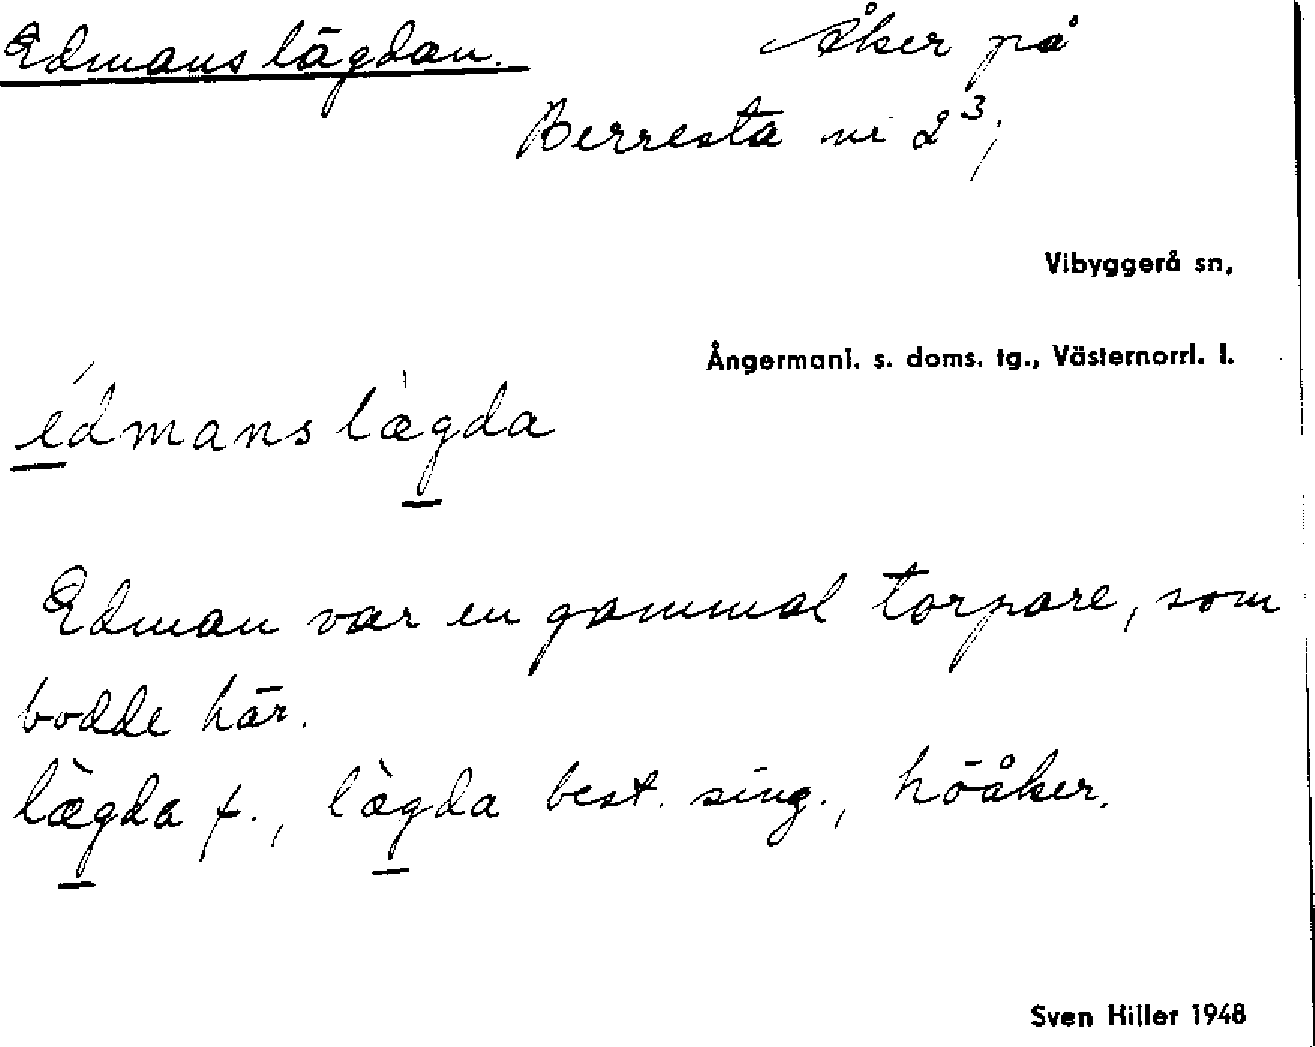 Edmans lägdan. Åker på
Berresta nr 2³;
Vibyggerå sn,
Ångermanl. s. doms. tg., Västernorrl. l.
édmanslægda
Edman var en gammal torpare, som
bodde här.
lægda f., lægda best. sing., höåker.
Sven Hiller 1948